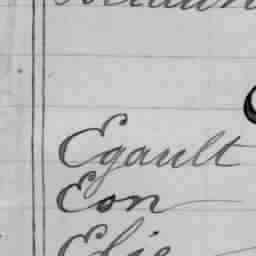 Egault
Eon
Elie